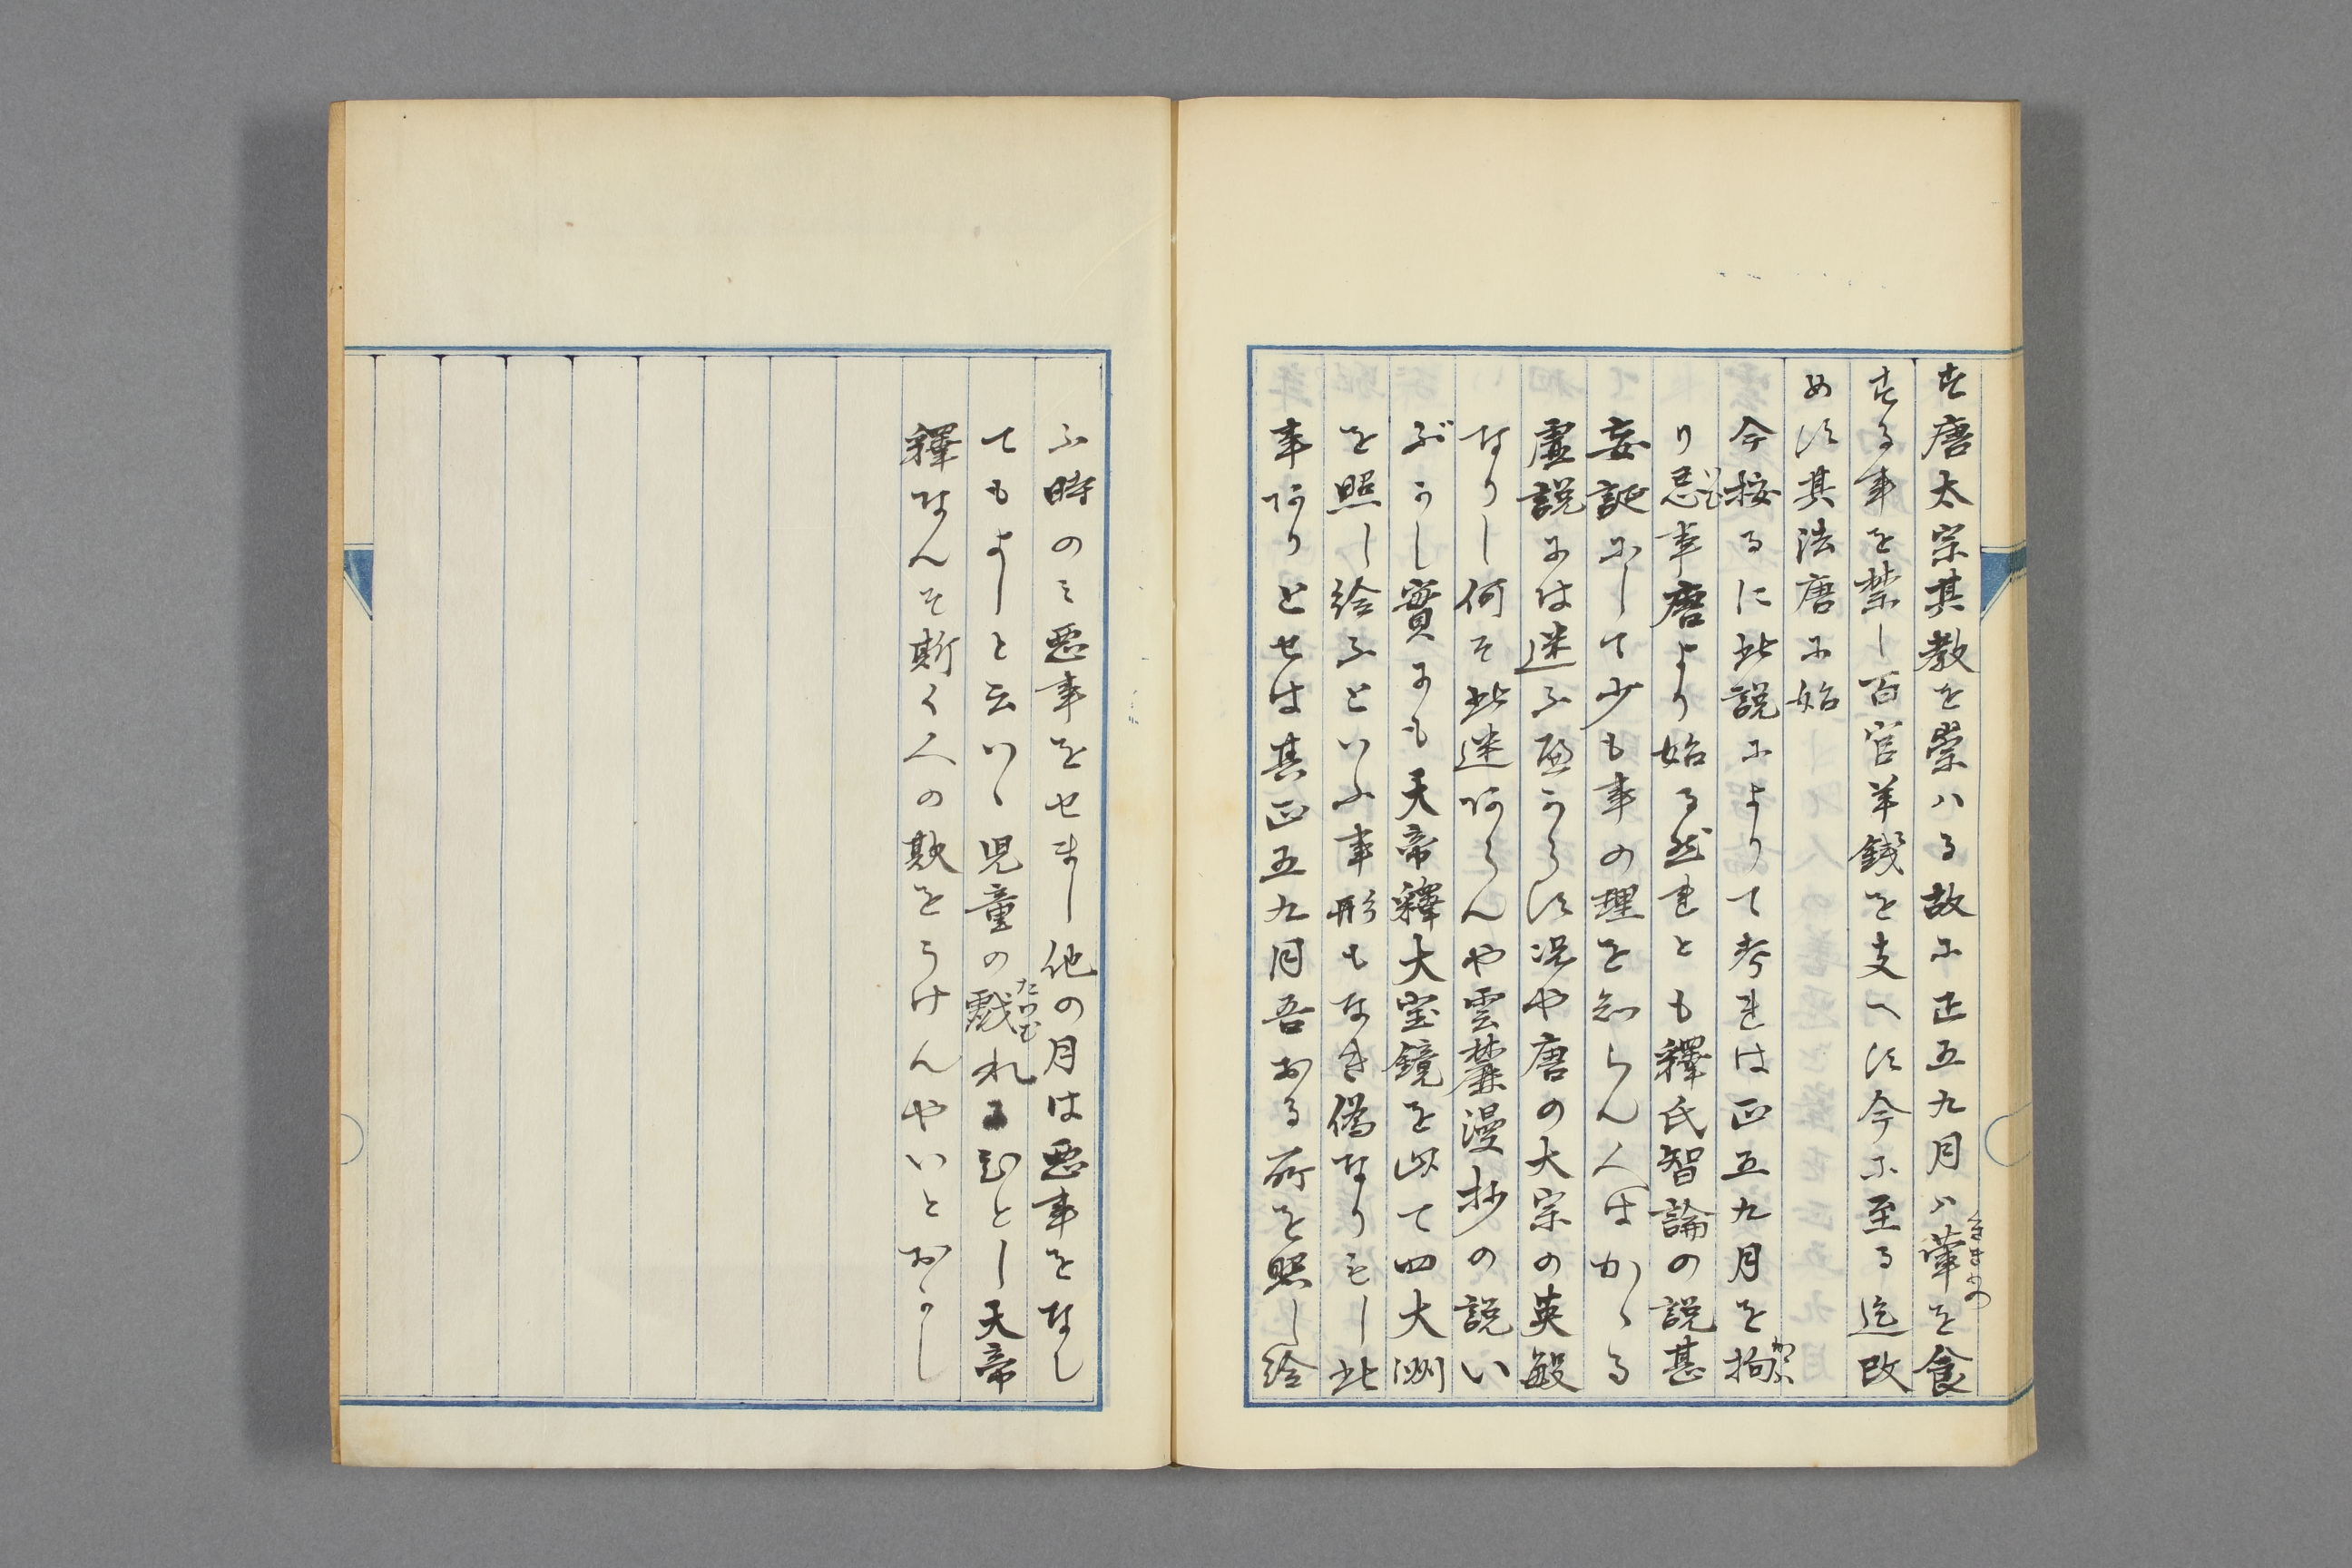 す唐太宗其教を崇ハる故に正五九月ハ葷を食
する事を禁し百官羊錢を支へす今に至る迄改
めす其法唐に始
今按るに此説によりて考れは正五九月を拘
り忌事唐より始る然れとも釋氏智論の説甚
妄誕にして少も事の理を知らん人はかゝる
虚説には迷ふ可らす况や唐の太宗の英敏
なりし何そ此迷あらんや雲麓漫抄の説い
ぶかし實にも天帝釋大宝鏡を以て四大洲
を照し給ふといふ事形もなき偽なりもし此
事ありとせは其正五九月吾おる所を照し給
ふ時のミ悪事をせまし他の月は悪事をなし
てもよしと云ハゝ児童の戯れにひとし天帝
釋なんそ斯く人の欺をうけんやいとおかし